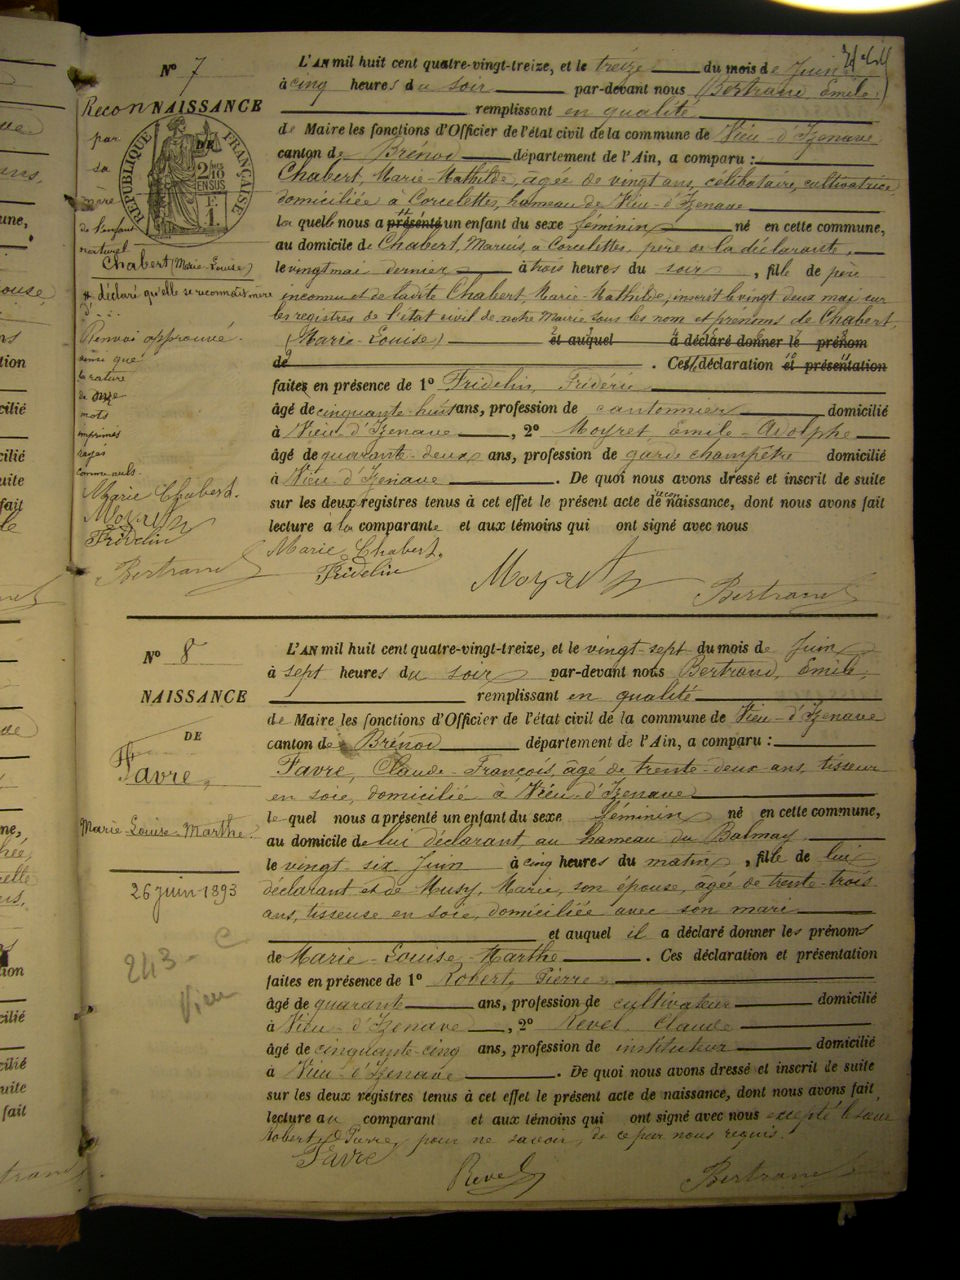 N° 7
ReconNAISSANCE
par
sa
mère
de l'enfant
naturel
Chabert (Marie-Louise)
déclaré qu'elle se reconnait mère
d'
Renvoi approuvé
ainsi que
la rature
de onze
mots
imprimés
rayés
comme nuls.
Marie Chabert.
Moyret
Fridelin
Bertrand
L'AN mil huit cent quatre-vingt-treize, et le treize du mois de Juin
à cinq heures du soir par-devant nous Bertrand Emile,
remplissant en qualité
de Maire les fonctions d'Officier de l'état civil de la commune de Vieu-d'Izenave
canton de Brénod département de l'Ain, a comparu :
Chabert, Marie-Mathilde, âgée de vingt ans, célibataire, cultivatrice
domiciliée à Corcelettes, hameau de Vieu-d'Izenave
la quelle nous a présenté un enfant du sexe féminin né en cette commune,
au domicile de Chabert, Marius, à Corcelettes, père de la déclarante,
le vingt mai dernier à trois heures du soir, fille de père
inconnu et de ladite Chabert, Marie-Mathilde, inscrit le vingt deux mai sur
les registres de l'état civil de notre Mairie sous les nom et prénoms de Chabert
(Marie-Louise) et auquel a déclaré donner le prénom
de . Cette déclaration et présentation
faites en présence de 1° Fridelin, Frédéric
âgé de cinquante-huit ans, profession de cantonnier domicilié
à Vieu-d'Izenave, 2° Moyret, Emile-Adolphe
âgé de quarante-deux ans, profession de garde champêtre domicilié
à Vieu-d'Izenave. De quoi nous avons dressé et inscrit de suite
sur les deux registres tenus à cet effet le présent acte de reconnaissance, dont nous avons fait
lecture à la comparante et aux témoins qui ont signé avec nous
Marie Chabert.
Fridelin Moyret Bertrand
N° 8
NAISSANCE
DE
Favre,
Marie-Louise-Marthe.
26 juin 1893
243 - C
Vieu
L'AN mil huit cent quatre-vingt-treize, et le vingt-sept du mois de Juin
à sept heures du soir par-devant nous Bertrand, Emile,
remplissant en qualité
de Maire les fonctions d'Officier de l'état civil de la commune de Vieu-d'Izenave
canton de Brénod département de l'Ain, a comparu :
Favre, Claude-François, âgé de trente-deux ans, tisseur
en soie, domicilié à Vieu-d'Izenave
le quel nous a présenté un enfant du sexe féminin né en cette commune,
au domicile de lui déclarant, au hameau du Balmay
le vingt six Juin à cinq heures du matin, fille de lui
déclarant et de Musy, Marie, son épouse, âgée de trente-trois
ans, tisseuse en soie, domiciliée avec son mari
et auquel il a déclaré donner les prénoms
de Marie-Louise-Marthe. Ces déclaration et présentation
faites en présence de 1° Robert, Pierre
âgé de quarante ans, profession de cultivateur domicilié
à Vieu-d'Izenave, 2° Revel, Claude
âgé de cinquante-cinq ans, profession de instituteur domicilié
à Vieu-d'Izenave. De quoi nous avons dressé et inscrit de suite
sur les deux registres tenus à cet effet le présent acte de naissance, dont nous avons fait
lecture au comparant et aux témoins qui ont signé avec nous excepté le sieur
Robert, Pierre, pour ne savoir, de ce par nous requis.
Favre
Revel Bertrand